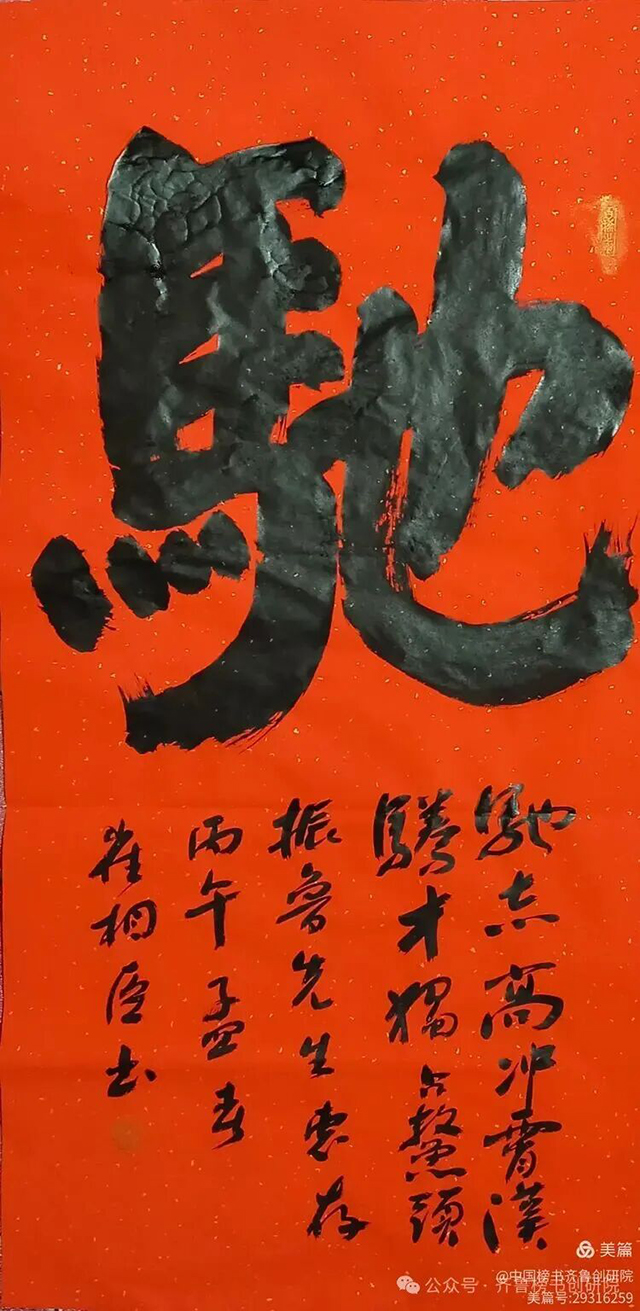 馳
馳志高冲霄漢
騰才獨占鰲頭
振魯先生惠存
丙午孟春
崔相臣书
美篇
@中国榜书齐鲁创研院
公众号·齐鲁榜书创研院
美篇号:29316259